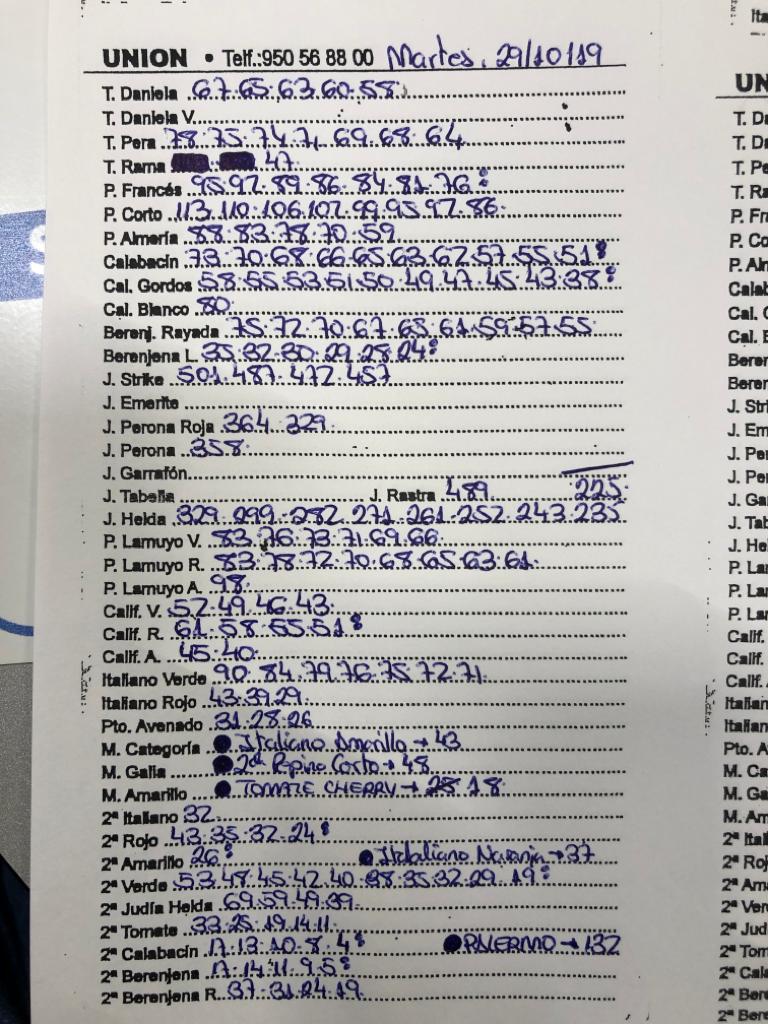 UNION • Telf.:950 56 88 00 Martes, 29/10/19
T. Daniela 67.65.63.60.58.
T. Daniela V.
T. Pera 78.75.74.71.69.68.64
T. Rama 47.
P. Francés 95.92.89.86.84.81.76:
P. Corto 113.110.106.102.99.95.92.86.
P. Almería 88.83.78.70.59
Calabacín 73.70.68.66.65.63.62.57.55.51:
Cal. Gordos 58.55.53.51.50.49.47.45.43.38:
Cal. Blanco 80.
Berenj. Rayada 75.72.70.67.65.61.59.57.55
Berenjena L. 35.32.30.29.28.24:
J. Strike 501.487.472.457
J. Emerite
J. Perona Roja 364.329.
J. Perona 358.
J. Garrafón
J. Tabella J. Rastra 489. 225.
J. Helda 329.299.282.271.261.252.243.235
P. Lamuyo V. 83.76.73.71.69.66
P. Lamuyo R. 83.78.72.70.68.65.63.61.
P. Lamuyo A. 98.
Calif. V. 52.49.46.43.
Calif. R. 61.58.55.51:
Calif. A. 45.40.
Italiano Verde 90.84.79.76.75.72.71.
Italiano Rojo 43.39.29.
Pto. Avenado 31.28.26
M. Categoría ● Italiano Amarillo → 43
M. Galia ● 2ª Pepino Corto → 48
M. Amarillo ● TOMATE CHERRY → 18
2ª Italiano 32
2ª Rojo 43.35.32.24:
2ª Amarillo 26: ● Itdaliano Naranja → 37
2ª Verde 53.48.45.42.40.38.35.32.29.19:
2ª Judía Helda 69.59.49.39.
2ª Tomate 33.25.19.14.11.
2ª Calabacín 17.13.10.8.4: ● PALERMO → 132
2ª Berenjena 17.14.11.9.5:
2ª Berenjena R. 37.31.24.19.
Ita
UN
T. Da
T. Da
T. Pe
T. Ra
P. Fra
P. Co
P. Aln
Calab
Cal. G
Cal. B
Beren
Beren
J. Stri
J. Em
J. Per
J. Per
J. Ga
J. Tab
J. He
P. La
P. La
P. La
Calif.
Calif.
Calif.
Italian
Italian
Pto. A
M. Ca
M. Ga
M. Am
2ª Ital
2ª Roj
2ª Ama
2ª Ver
2ª Jud
2ª Tom
2ª Cala
2ª Bere
2ª Bere